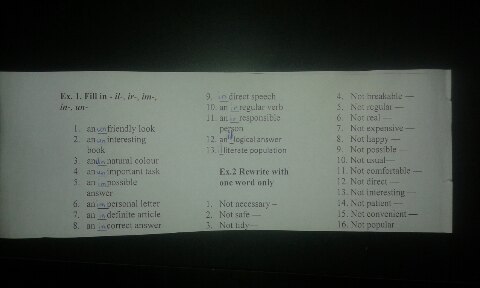 Ex. 1. Fill in - il-, ir-, im-,
in-, un-
1. an un friendly look
2. an un interesting
book
3. an un natural colour
4. an un important task
5. an im possible
answer
6. an im personal letter
7. an in definite article
8. an in correct answer
9. in direct speech
10. an ir regular verb
11. an ir responsible
person
12. an il logical answer
13. il literate population
Ex.2 Rewrite with
one word only
1. Not necessary –
2. Not safe —
3. Not tidy—
4. Not breakable —
5. Not regular —
6. Not real —
7. Not expensive —
8. Not happy —
9. Not possible —
10. Not usual—
11. Not comfortable —
12. Not direct —
13. Not interesting —
14. Not patient —
15. Not convenient —
16. Not popular